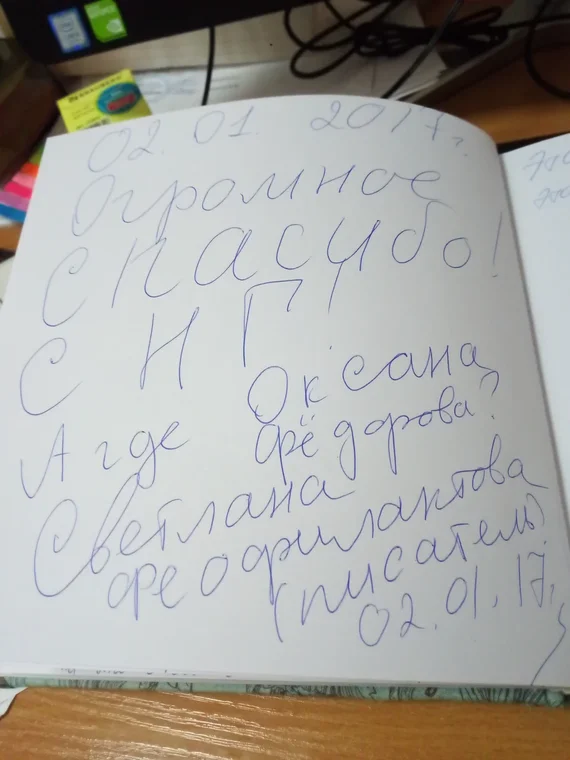 02.01. 2017г.
Огромное
Спасибо!
С Н Г!
А где Оксана
Фёдорова?
Светлана
Феофилактова
(писатель)
02.01.17.